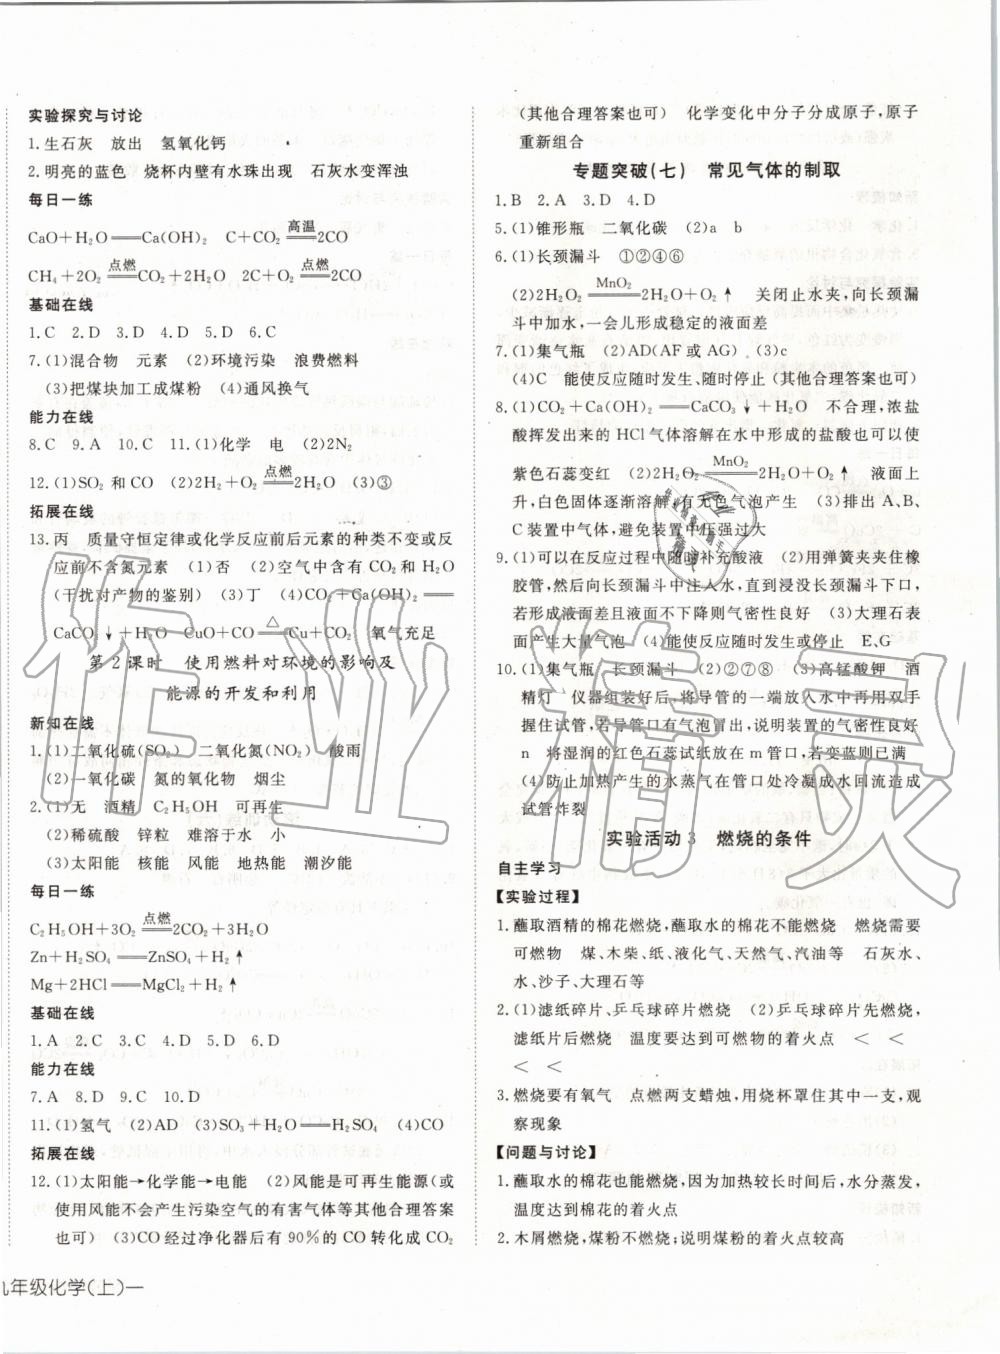 实验探究与讨论
1.生石灰 放出 氢氧化钙
2.明亮的蓝色 烧杯内壁有水珠出现 石灰水变浑浊
每日一练
CaO+H₂O══Ca(OH)₂ C+CO₂ 高温══ 2CO
CH₄+2O₂ 点燃══ CO₂+2H₂O 2C+O₂ 点燃══ 2CO
基础在线
1.C 2.D 3.D 4.D 5.D 6.C
7.(1)混合物 元素 (2)环境污染 浪费燃料
(3)把煤块加工成煤粉 (4)通风换气
能力在线
8.C 9.A 10.C 11.(1)化学 电 (2)2N₂
12.(1)SO₂ 和 CO (2)2H₂+O₂ 点燃══ 2H₂O (3)③
拓展在线
13.丙 质量守恒定律或化学反应前后元素的种类不变或反
应前不含氮元素 (1)否 (2)空气中含有 CO₂ 和 H₂O
(干扰对产物的鉴别) (3)丁 (4)CO₂+Ca(OH)₂══
CaCO₃↓+H₂O CuO+CO △══ Cu+CO₂ 氧气充足
第 2 课时 使用燃料对环境的影响及
能源的开发和利用
新知在线
1.(1)二氧化硫(SO₂) 二氧化氮(NO₂) 酸雨
(2)一氧化碳 氮的氧化物 烟尘
2.(1)无 酒精 C₂H₅OH 可再生
(2)稀硫酸 锌粒 难溶于水 小
(3)太阳能 核能 风能 地热能 潮汐能
每日一练
C₂H₅OH+3O₂ 点燃══ 2CO₂+3H₂O
Zn+H₂SO₄══ZnSO₄+H₂↑
Mg+2HCl══MgCl₂+H₂↑
基础在线
1.A 2.C 3.C 4.D 5.D 6.D
能力在线
7.A 8.D 9.C 10.D
11.(1)氢气 (2)AD (3)SO₃+H₂O══H₂SO₄ (4)CO
拓展在线
12.(1)太阳能→化学能→电能 (2)风能是可再生能源(或
使用风能不会产生污染空气的有害气体等其他合理答案
也可) (3)CO 经过净化器后有 90%的 CO 转化成 CO₂
九年级化学(上)一
(其他合理答案也可) 化学变化中分子分成原子,原子
重新组合
专题突破(七) 常见气体的制取
1.B 2.A 3.D 4.D
5.(1)锥形瓶 二氧化碳 (2)a b
6.(1)长颈漏斗 ①②④⑥
(2)2H₂O₂ MnO₂══ 2H₂O+O₂↑ 关闭止水夹,向长颈漏
斗中加水,一会儿形成稳定的液面差
7.(1)集气瓶 (2)AD(AF或 AG) (3)c
(4)C 能使反应随时发生、随时停止(其他合理答案也可)
8.(1)CO₂+Ca(OH)₂══CaCO₃↓+H₂O 不合理,浓盐
酸挥发出来的 HCl 气体溶解在水中形成的盐酸也可以使
紫色石蕊变红 (2)2H₂O₂ MnO₂══ 2H₂O+O₂↑ 液面上
升,白色固体逐渐溶解 有无色气泡产生 (3)排出 A、B、
C 装置中气体,避免装置中压强过大
9.(1)可以在反应过程中随时补充酸液 (2)用弹簧夹夹住橡
胶管,然后向长颈漏斗中注入水,直到浸没长颈漏斗下口,
若形成液面差且液面不下降则气密性良好 (3)大理石表
面产生大量气泡 (4)能使反应随时发生或停止 E、G
10.(1)集气瓶 长颈漏斗 (2)②⑦⑧ (3)高锰酸钾 酒
精灯 仪器组装好后,将导管的一端放入水中再用双手
握住试管,若导管口有气泡冒出,说明装置的气密性良好
n 将湿润的红色石蕊试纸放在 m 管口,若变蓝则已满
(4)防止加热产生的水蒸气在管口处冷凝成水回流造成
试管炸裂
实验活动 3 燃烧的条件
自主学习
【实验过程】
1.蘸取酒精的棉花燃烧,蘸取水的棉花不能燃烧 燃烧需要
可燃物 煤、木柴、纸、液化气、天然气、汽油等 石灰水、
水、沙子、大理石等
2.(1)滤纸碎片、乒乓球碎片燃烧 (2)乒乓球碎片先燃烧,
滤纸片后燃烧 温度要达到可燃物的着火点 < <
< <
3.燃烧要有氧气 点燃两支蜡烛,用烧杯罩住其中一支,观
察现象
【问题与讨论】
1.蘸取水的棉花也能燃烧,因为加热较长时间后,水分蒸发,
温度达到棉花的着火点
2.木屑燃烧,煤粉不燃烧;说明煤粉的着火点比木屑高
作业精灵